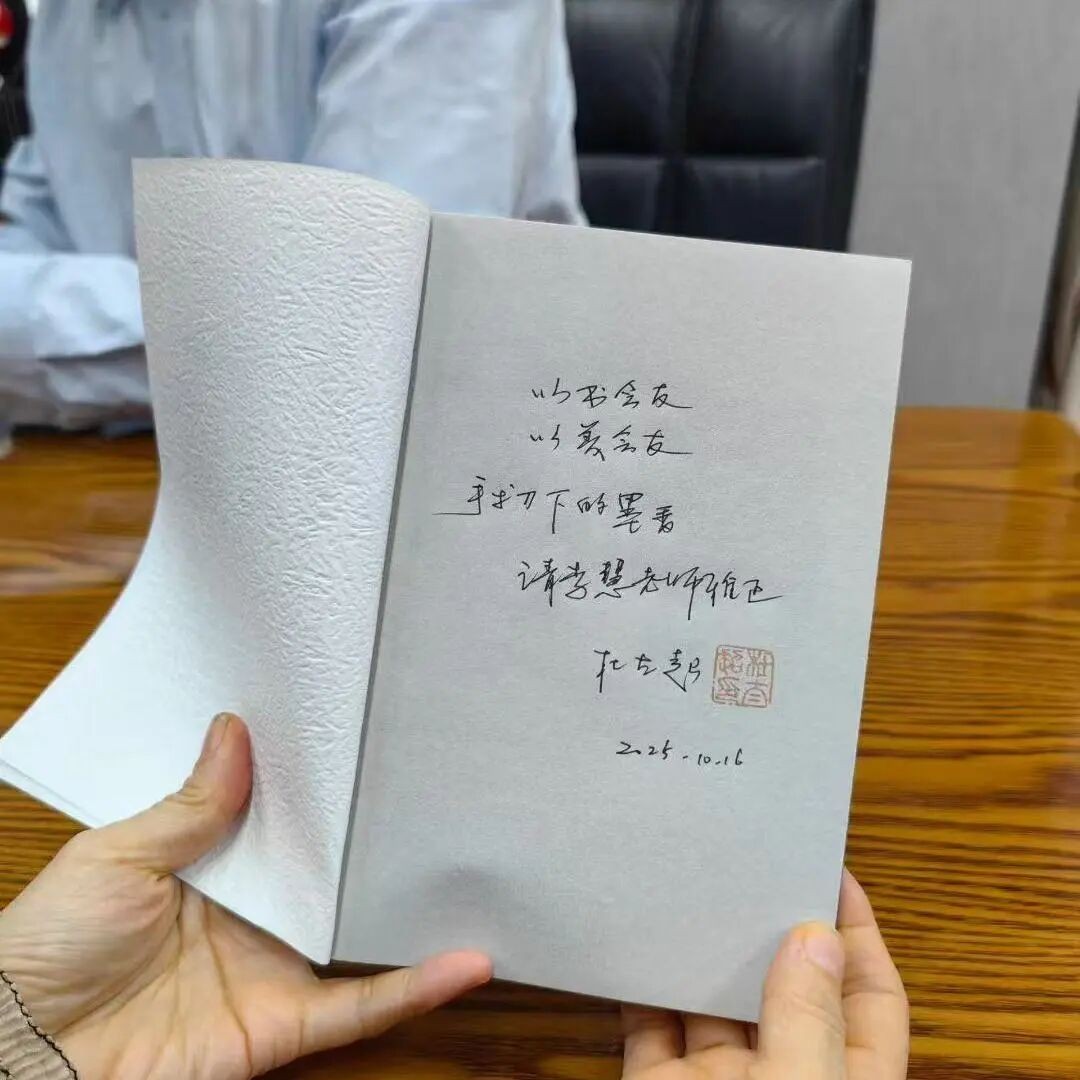 以书会友
以美会友
手术刀下的墨香
请李慧老师雅正
杜太超
杜太超印
2025.10.16